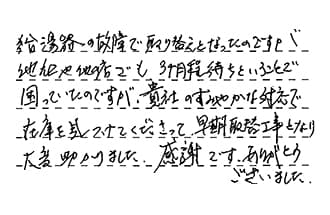 給湯器の故障で取り替えとなったのですが
他社他店でも3ヶ月程待ちということで
困っていたのですが、貴社のすみやかな対応で
在庫を見つけてくださって、早期取替工事となり
大変助かりました。感謝です。ありがとう
ございました。